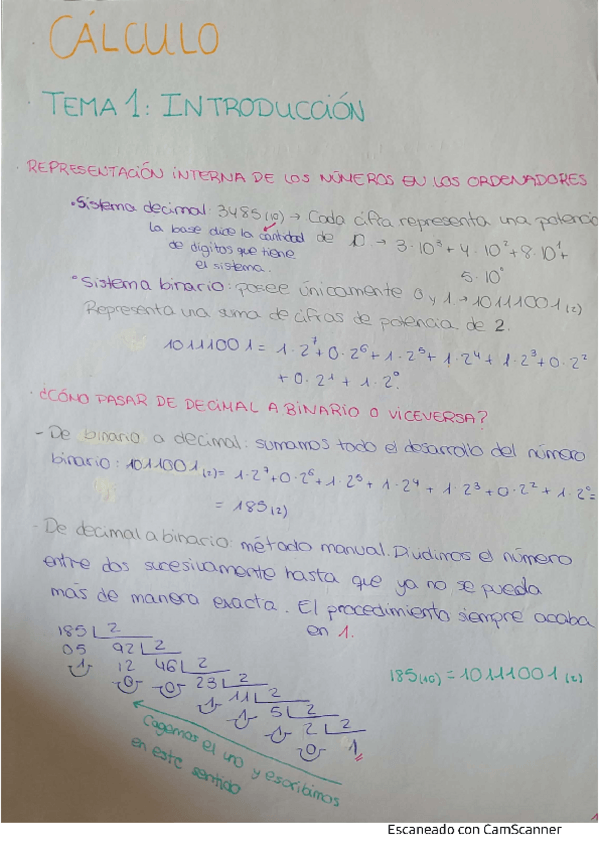 CÁLCULO
· TEMA 1: INTRODUCCIÓN
· REPRESENTACIÓN INTERNA DE LOS NÚMEROS EN LOS ORDENADORES
· Sistema decimal: 3485(10) → Cada cifra representa una potencia
la base dice la cantidad de 10. → 3·10³+4·10²+8·10¹+
de dígitos que tiene
el sistema.
5·10⁰
· Sistema binario: posee únicamente 0 y 1 → 10111001(2)
Representa una suma de cifras de potencia de 2.
10111001 = 1·2⁷+0·2⁶+1·2⁵+1·2⁴+1·2³+0·2²
+0·2¹+1·2⁰.
· ¿CÓMO PASAR DE DECIMAL A BINARIO O VICEVERSA?
- De binario a decimal: sumamos todo el desarrollo del número
binario: 1011001(2)= 1·2⁷+0·2⁶+1·2⁵+1·2⁴+1·2³+0·2²+1·2⁰=
= 185(2)
- De decimal a binario: método manual. Dividimos el número
entre dos sucesivamente hasta que ya no se pueda
más de manera exacta. El procedimiento siempre acaba
en 1.
185 2
05 92 2
1 12 46 2
0 0 23 2
1 11 2
1 5 2
1 2 2
0 1
185(10) = 10111001(2)
Cogemos el uno y escribimos
en este sentido
1
Escaneado con CamScanner